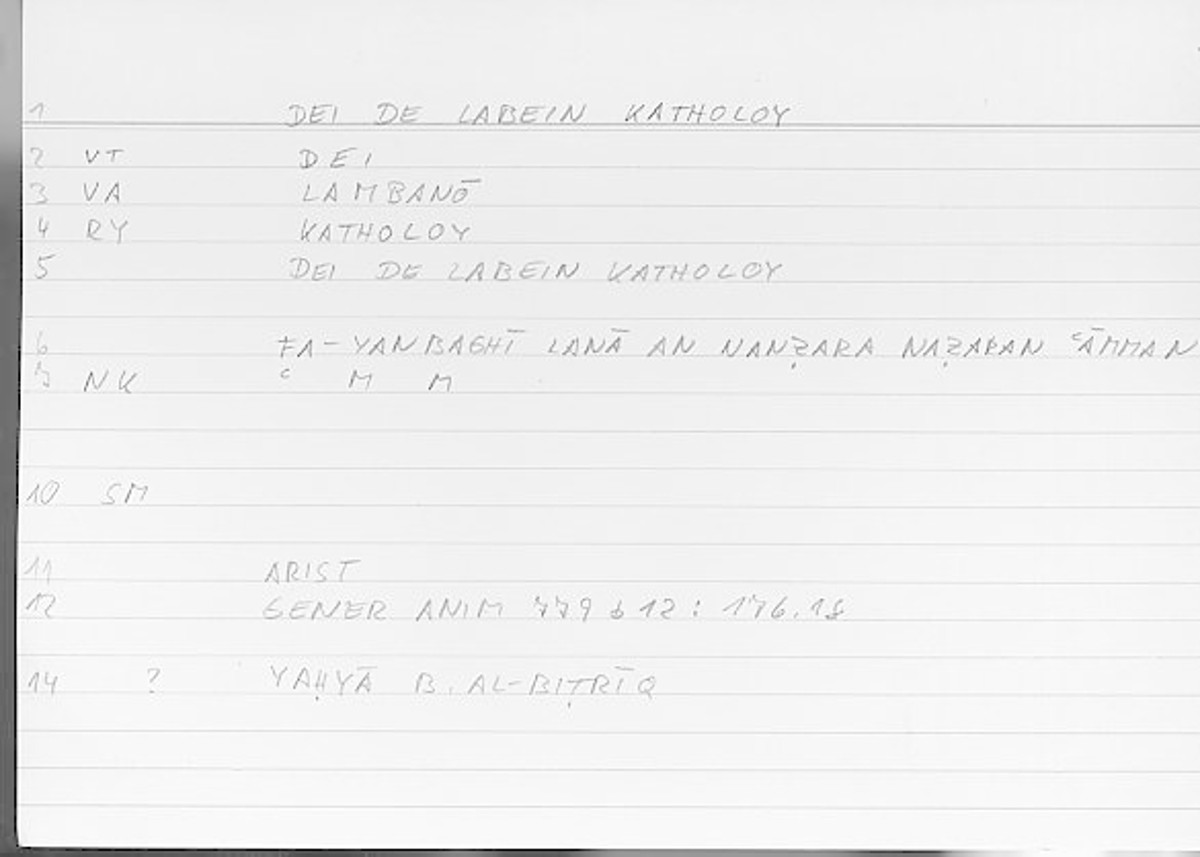 1 DEI DE LABEIN KATHOLOY
2 VT DEI
3 VA LAMBANŌ
4 RY KATHOLOY
5 DEI DE LABEIN KATHOLOY
6 FA-YANBAGHĪ LANĀ AN NANẒARA NAẒARAN ʿĀMMAN
7 NK ʿ M M
10 SM
11 ARIST
12 GENER ANIM 779 b 12 : 176.18
14 ? YAḤYĀ B. AL-BIṬRĪQ